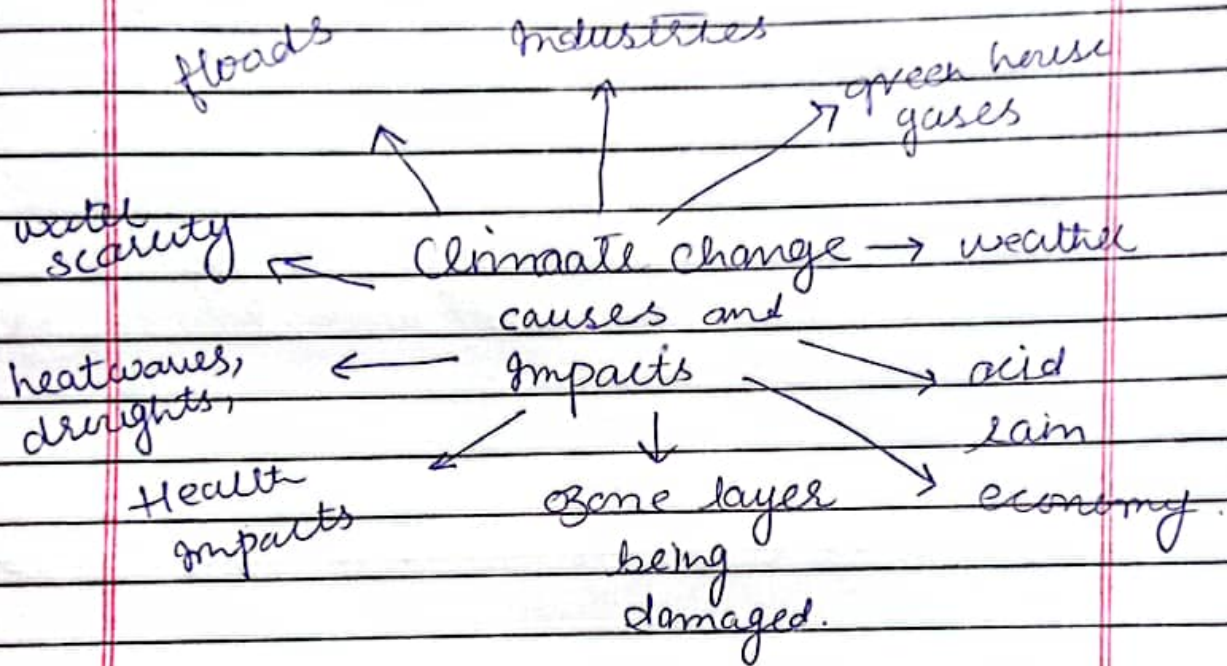 floads
Industries
green house
gases
water
scarcity
Climaate change
weather
causes and
Impacts
heatwaves,
droughts,
acid
rain
Health
Impacts
Ozone layer
being
damaged.
economy.